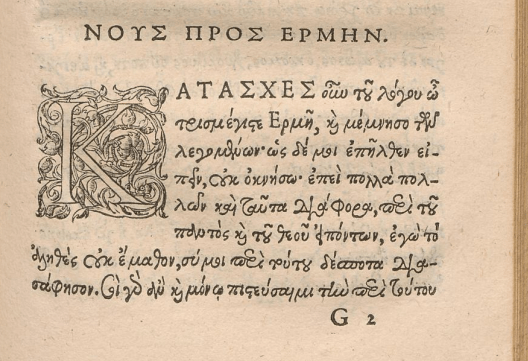 ΝΟΥΣ ΠΡΟΣ ΕΡΜΗΝ.
ΚΑΤΑΣΧΕΣ οὖν τοῦ λόγου ὦ
τρισμέγιστε Ερμῆ, καὶ μέμνησο τῶν
λεγομένων· ὡς δέ μοι ἐπῆλθεν εἰ-
πεῖν, οὐκ ὀκνήσω· ἐπεὶ πολλὰ πολ-
λῶν καὶ ταῦτα διάφορα, περὶ τοῦ
παντὸς καὶ τοῦ θεοῦ εἰπόντων, ἐγὼ τὸ
ἀληθὲς οὐκ ἔμαθον, σύ μοι περὶ τούτου δέσποτα δια-
σάφησον. Σοὶ γὰρ ἂν καὶ μόνῳ πιστεύσαιμι τὴν περὶ τούτου
G 2